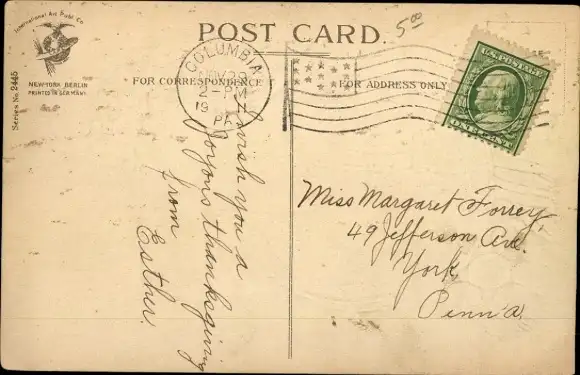 International Art Publ. Co.
NEW YORK BERLIN
PRINTED IN GERMANY
Series No. 2445
POST CARD
5.00
COLUMBIA
2-PM
19
PA
FOR CORRESPONDENCE
FOR ADDRESS ONLY
U.S. POSTAGE
ONE CENT
I wish you a
Joyous thanksgiving
from
Esther.
Miss Margaret Forrey,
49 Jefferson Ave.
York,
Penn'a.